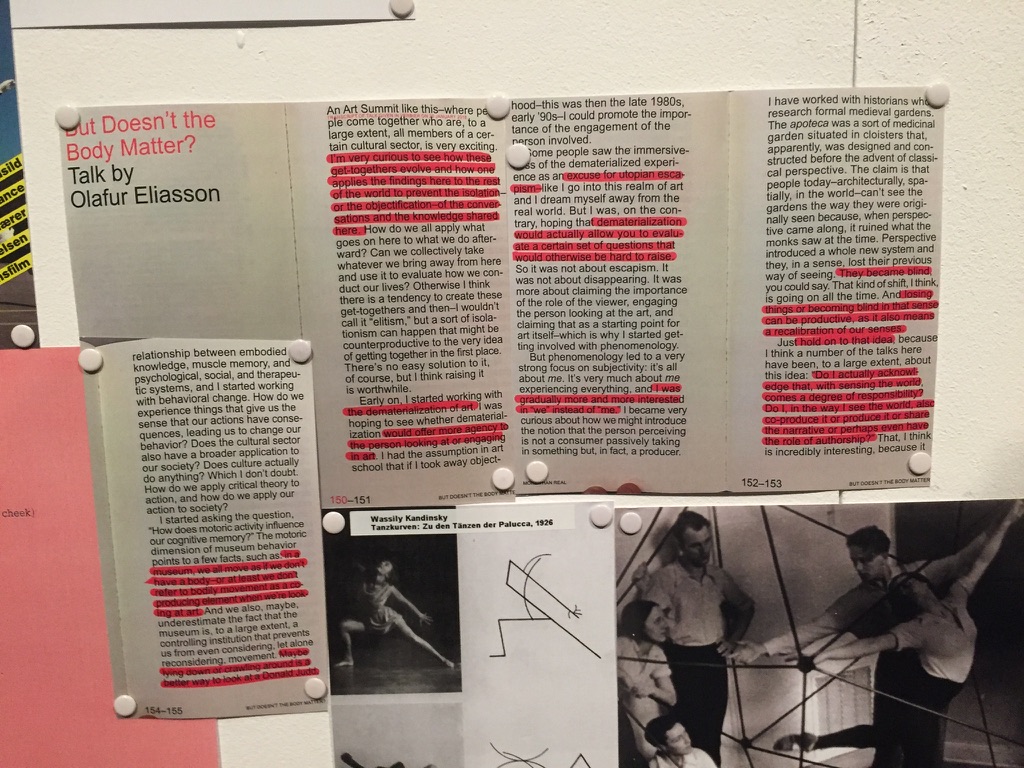 But Doesn't the
Body Matter?
Talk by
Olafur Eliasson
An Art Summit like this–where peo-
ple come together who are, to a
large extent, all members of a cer-
tain cultural sector, is very exciting.
I'm very curious to see how these
get-togethers evolve and how one
applies the findings here to the rest
of the world to prevent the isolation–
or the objectification–of the conver-
sations and the knowledge shared
here. How do we all apply what
goes on here to what we do after-
ward? Can we collectively take
whatever we bring away from here
and use it to evaluate how we con-
duct our lives? Otherwise I think
there is a tendency to create these
get-togethers and then–I wouldn't
call it "elitism," but a sort of isola-
tionism can happen that might be
counterproductive to the very idea
of getting together in the first place.
There's no easy solution to it,
of course, but I think raising it
is worthwhile.
Early on, I started working with
the dematerialization of art. I was
hoping to see whether demateria-
lization would offer more agency to
the person looking at or engaging
in art. I had the assumption in art
school that if I took away object-
150–151
BUT DOESN'T THE BODY MATTE
hood–this was then the late 1980s,
early '90s–I could promote the impor-
tance of the engagement of the
person involved.
Some people saw the immersive-
ness of the dematerialized experi-
ence as an excuse for utopian esca-
pism–like I go into this realm of art
and I dream myself away from the
real world. But I was, on the con-
trary, hoping that dematerialization
would actually allow you to evalu-
ate a certain set of questions that
would otherwise be hard to raise.
So it was not about escapism. It
was not about disappearing. It was
more about claiming the importance
of the role of the viewer, engaging
the person looking at the art, and
claiming that as a starting point for
art itself–which is why I started get-
ting involved with phenomenology.
But phenomenology led to a very
strong focus on subjectivity: it's all
about me. It's very much about me
experiencing everything, and I was
gradually more and more interested
in "we" instead of "me." I became very
curious about how we might introduce
the notion that the person perceiving
is not a consumer passively taking
in something but, in fact, a producer.
THAN REAL
I have worked with historians who
research formal medieval gardens.
The apoteca was a sort of medicinal
garden situated in cloisters that,
apparently, was designed and con-
structed before the advent of classi-
cal perspective. The claim is that
people today–architecturally, spa-
tially, in the world–can't see the
gardens the way they were origi-
nally seen because, when perspec-
tive came along, it ruined what the
monks saw at the time. Perspective
introduced a whole new system and
they, in a sense, lost their previous
way of seeing. They became blind,
you could say. That kind of shift, I think,
is going on all the time. And losing
things or becoming blind in that sense
can be productive, as it also means
a recalibration of our senses.
Just hold on to that idea, because
I think a number of the talks here
have been, to a large extent, about
this idea: "Do I actually acknowl-
edge that, with sensing the world,
comes a degree of responsibility?
Do I, in the way I see the world, also
co-produce it or produce it or share
the narrative or perhaps even have
the role of authorship?" That, I think
is incredibly interesting, because it
152–153
BUT DOESN'T THE BODY MATTER
relationship between embodied
knowledge, muscle memory, and
psychological, social, and therapeu-
tic systems, and I started working
with behavioral change. How do we
experience things that give us the
sense that our actions have conse-
quences, leading us to change our
behavior? Does the cultural sector
also have a broader application to
our society? Does culture actually
do anything? Which I don't doubt.
How do we apply critical theory to
action, and how do we apply our
action to society?
I started asking the question,
"How does motoric activity influence
our cognitive memory?" The motoric
dimension of museum behavior
points to a few facts, such as: in a
museum, we all move as if we don't
have a body–or at least we don't
refer to bodily movement as a co-
producing element when we're look-
ing at art. And we also, maybe,
underestimate the fact that the
museum is, to a large extent, a
controlling institution that prevents
us from even considering, let alone
reconsidering, movement. Maybe
lying down or crawling around is a
better way to look at a Donald Judd.
154–155
BUT DOESN'T THE BODY MATTER
Wassily Kandinsky
Tanzkurven: Zu den Tänzen der Palucca, 1926
cheek)